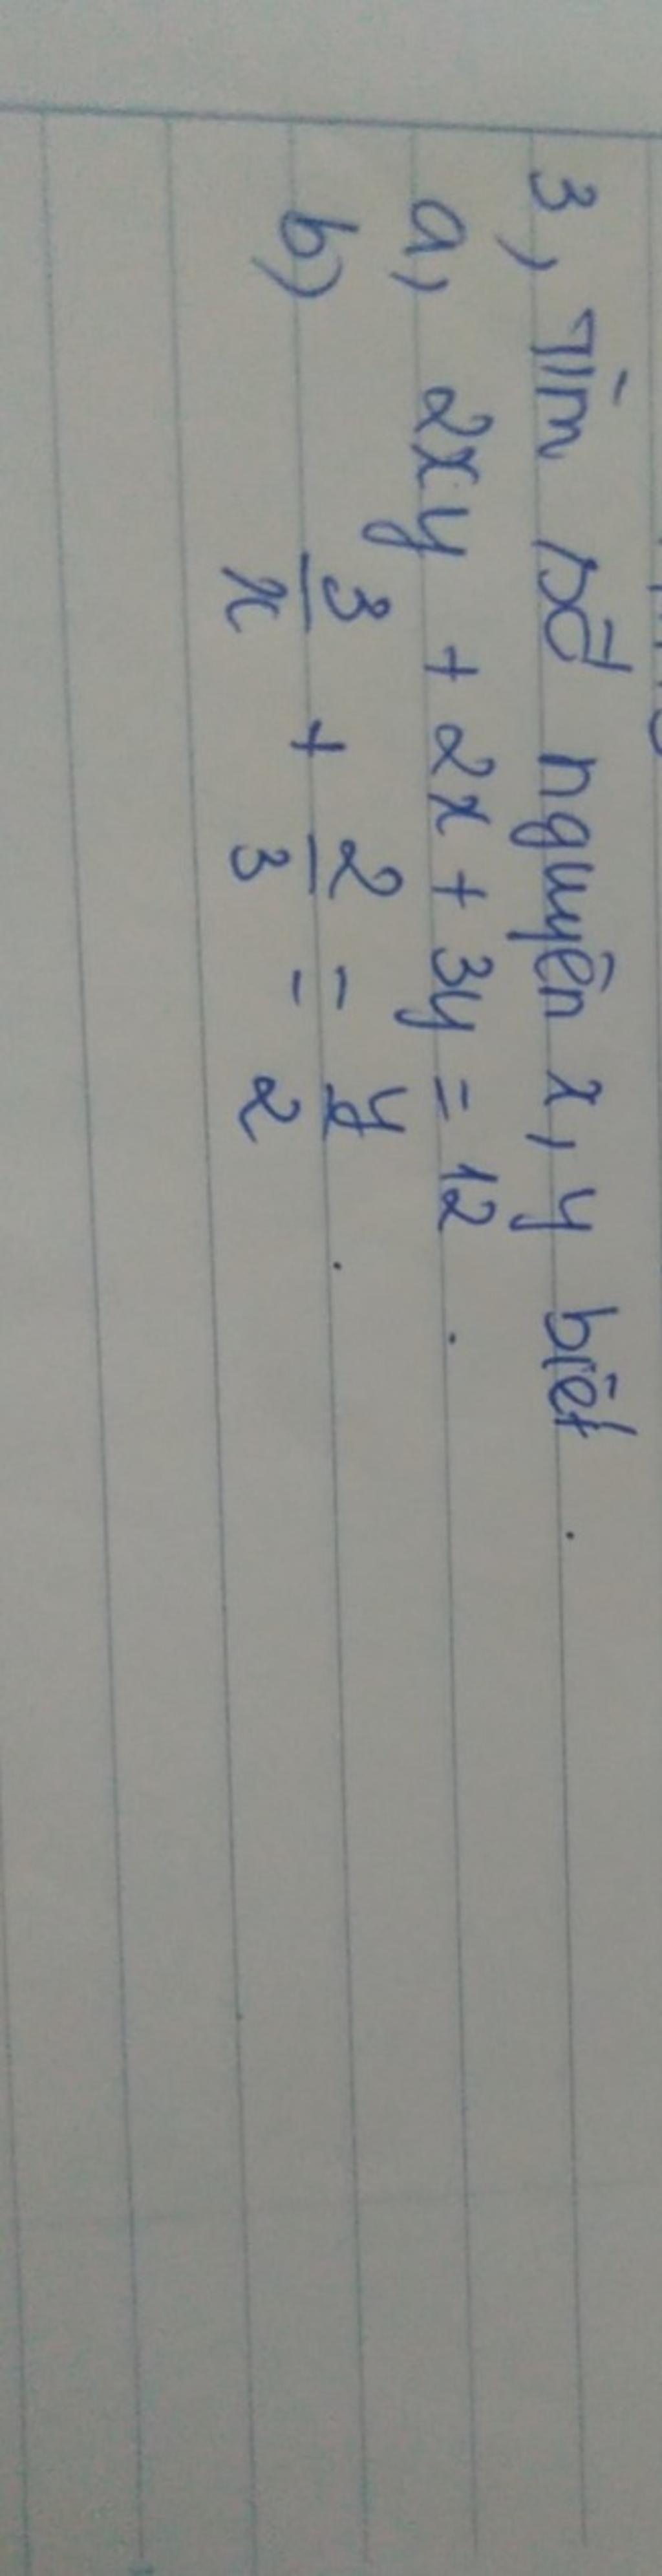 3, Tìm số nguyên x, y biết
a, 2xy + 2x + 3y = 12
b) 3/x + 2/3 = y/2